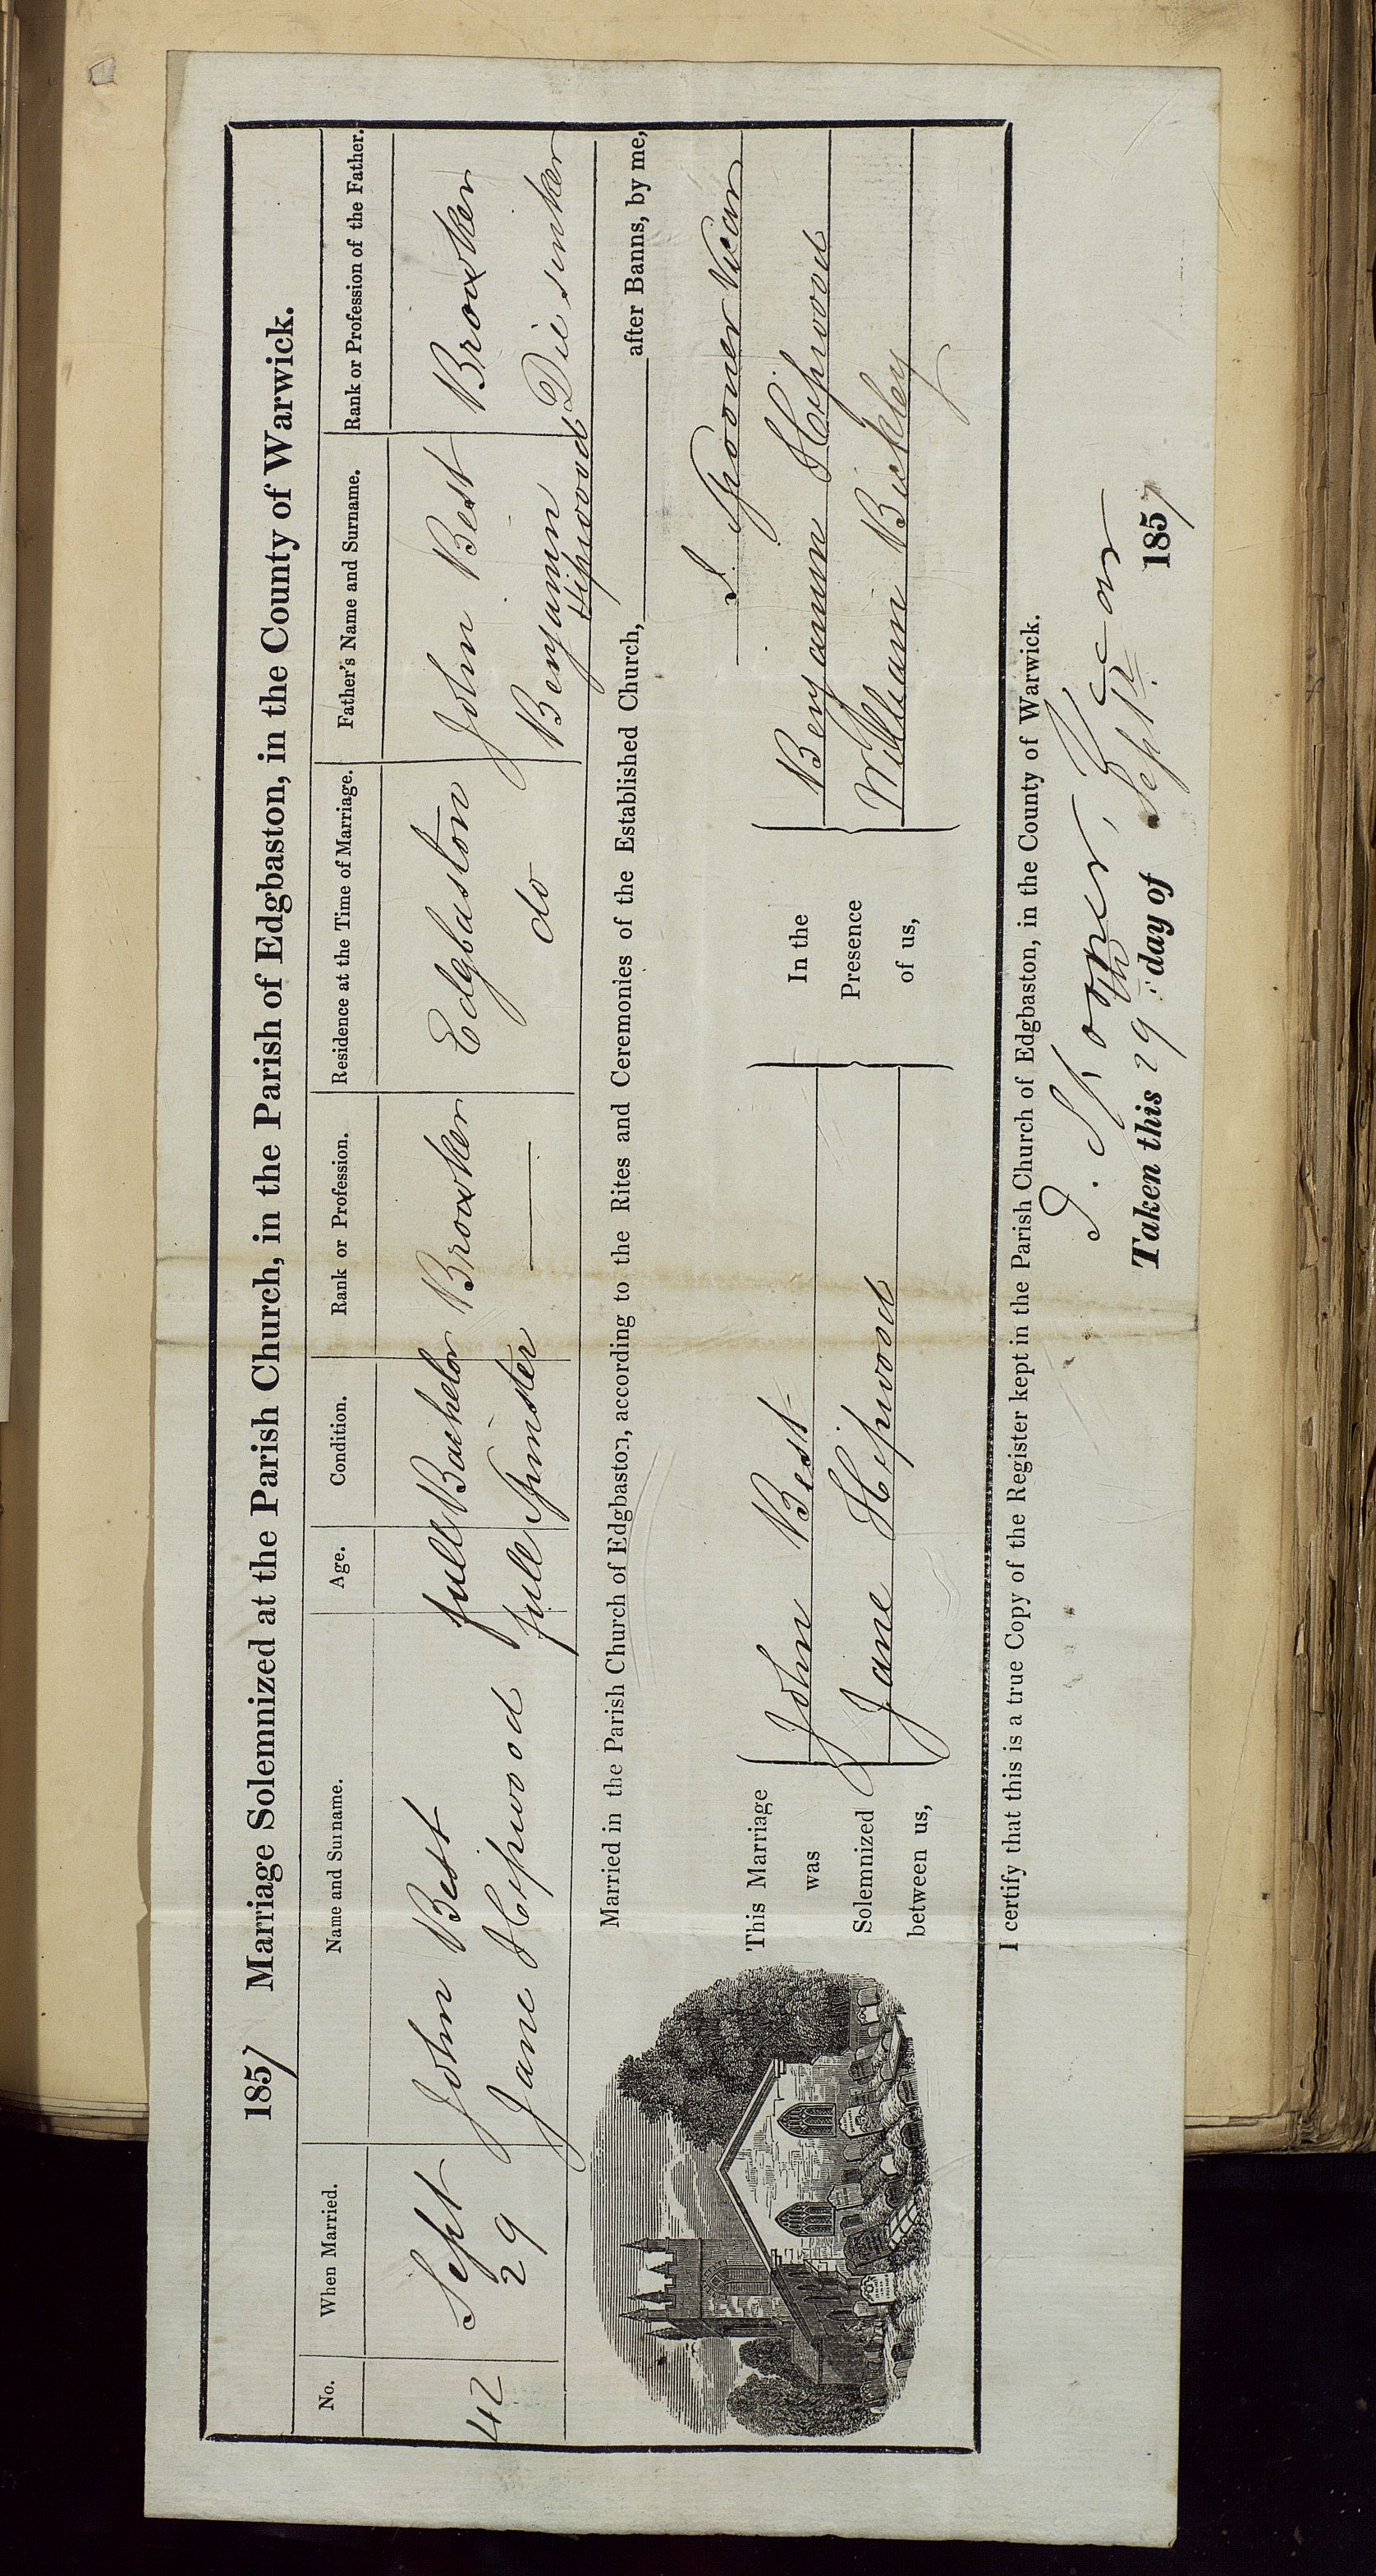 1857 Marriage Solemnized at the Parish Church, in the Parish of Edgbaston, in the County of Warwick.
No. When Married. Name and Surname. Age. Condition. Rank or Profession. Residence at the Time of Marriage. Father's Name and Surname. Rank or Profession of the Father.
42 Sept 29 John Best full Bachelor Broaker Edgbaston John Best Broaker
Jane Hipwood full Spinster — do Benjamin Hipwood Die sinker
Married in the Parish Church of Edgbaston, according to the Rites and Ceremonies of the Established Church, after Banns, by me,
I. Spooner Vicar
This Marriage was Solemnized between us,
John Best
Jane Hipwood
In the Presence of us,
Benjamin Hipwood
William Buckley
I certify that this is a true Copy of the Register kept in the Parish Church of Edgbaston, in the County of Warwick.
I. Spooner, Vicar
Taken this 29th day of Septr 1857